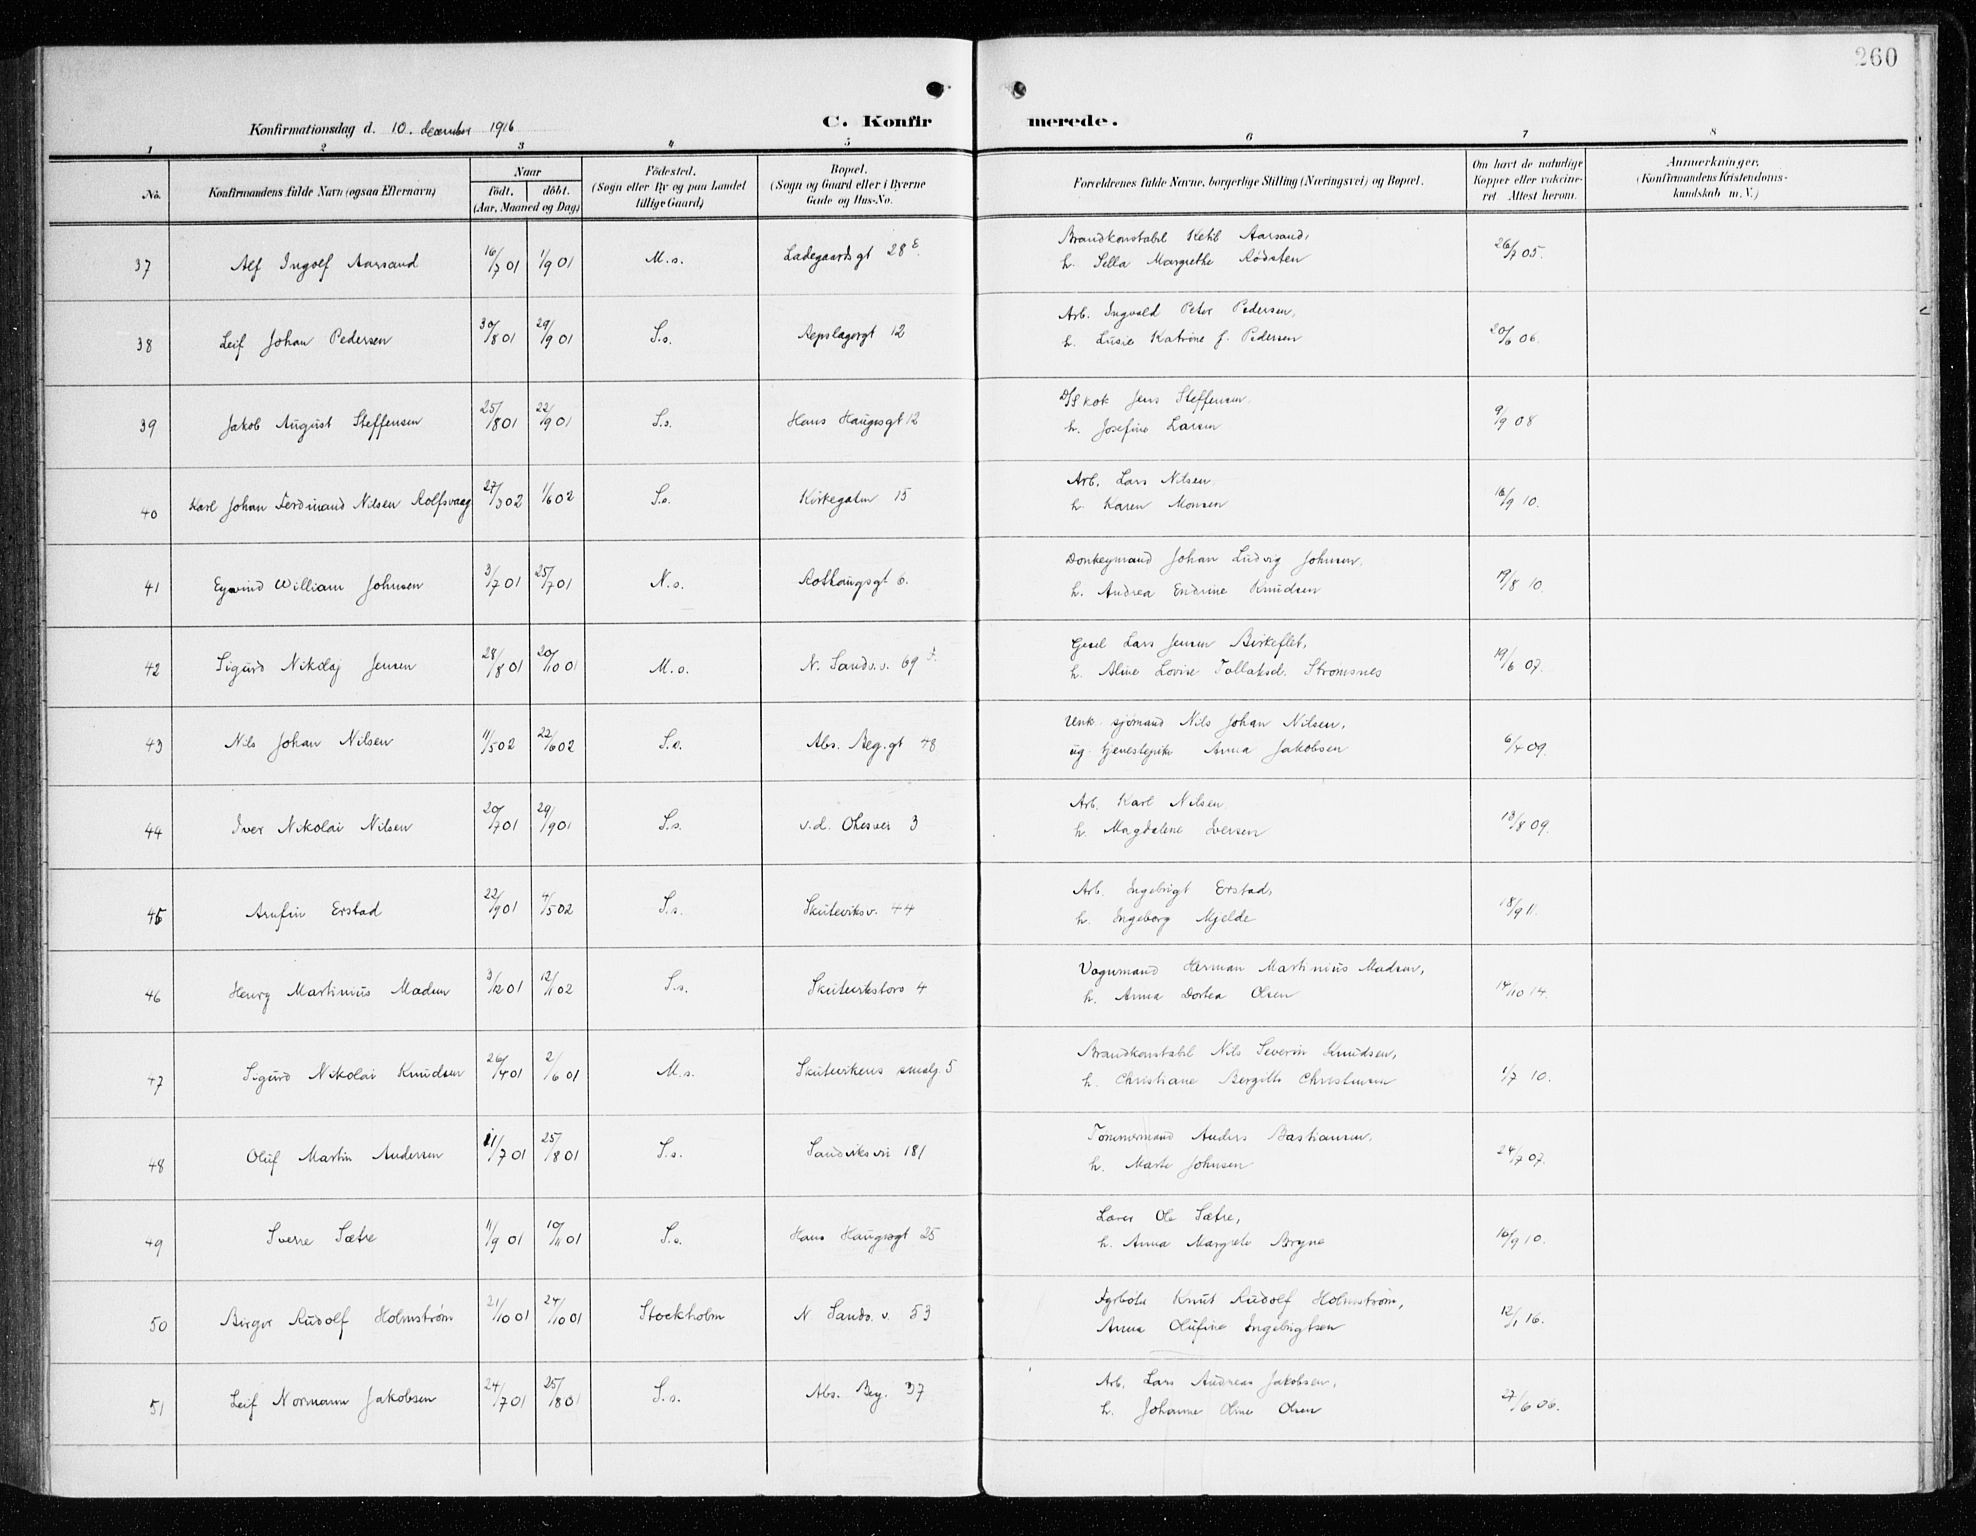 260
Konfirmationsdag d. 10. december 1916
C. Konfirmerede.
1 2 3 4 5 6 7 8
No.
Konfirmandens fulde Navn (ogsaa Efternavn)
Naar
födt. döbt.
(Aar, Maaned og Dag)
Födested.
(Sogn eller By og paa Landet
tillige Gaard)
Bopæl.
(Sogn og Gaard eller i Byerne
Gade og Hus-No.
Forældrenes fulde Navne, borgerlige Stilling (Næringsvei) og Bopæl.
Om havt de naturlige
Kopper eller vaccine-
ret Attest herom.
Anmerkninger.
(Konfirmandens Kristendoms-
kundskab m. V.)
37 Alf Ingolf Aarsand 16/7 01 1/9 01 M.s. Ladegaardsgt 28 E. Brandkonstabel Ketil Aarsand, 26/7 05.
h. Sella Margrethe Rødsten
38 Leif Johan Pedersen 30/8 01 29/9 01 S.s. Repslagergt 12 Arb. Ingvald Peter Pedersen, 20/6 06.
h. Lusie Katrine J. Pedersen
39 Jakob August Steffensen 25/8 01 22/9 01 S.s. Hans Haugesgt 12 D/S kok Jens Steffensen, 9/9 08
h. Josefine Larsen
40 Karl Johan Ferdinand Nilsen Rolfsvaag 27/3 02 1/6 02 S.s. Kirkegaten 15 Arb. Lars Nilsen, 16/9 10.
h. Karen Monsen
41 Eyvind William Johnsen 3/7 01 25/7 01 N.s. Rothaugsgt 6. Donkeymand Johan Ludvig Johnsen, 19/8 10.
h. Andrea Endrine Knudsen
42 Sigurd Nikolaj Jensen 28/8 01 20/10 01 M.s. N. Sandv.v. 69 F. Gsel Lars Jensen Birkeflet, 19/6 07.
h. Aline Lovise Tollaksd. Strømsnes
43 Nils Johan Nilsen 11/5 02 22/6 02 S.s. Abs. Bey.gt 48 Unk. sjømand Nils Johan Nilsen, 6/7 09.
ug. tjenestepike Anna Jakobsen
44 Iver Nikolai Nilsen 20/7 01 29/9 01 S.s. v.d. Olesvei 3 Arb. Karl Nilsen, 13/8 09.
h. Magdalene Iversen
45 Arnfin Erstad 22/9 01 4/5 02 S.s. Skuteviksv. 44 Arb. Ingebrigt Erstad, 18/9 11.
h. Ingeborg Mjelde
46 Henry Martinius Madsen 3/12 01 12/1 02 S.s. Skutevikstorv 4 Vognmand Herman Martinius Madsen, 14/10 14.
h. Anna Dortea Olsen
47 Sigurd Nikolai Knudsen 26/4 01 2/6 01 M.s. Skutevikens smalg. 5 Brandkonstabel Nils Severin Knudsen, 1/7 10.
h. Christiane Bergitte Christensen
48 Oluf Martin Andersen 11/7 01 25/8 01 S.s. Sandviksvei 181 Tømmermand Anders Bastiansen, 24/7 07.
h. Marte Johnsen
49 Sverre Sætre 11/9 01 10/11 01 S.s. Hans Haugesgt 25 Lærer Ole Sætre, 16/9 10.
h. Anna Margrete Bryne
50 Birger Rudolf Holmstrøm 21/10 01 24/10 01 Stockholm N Sandv. v. 53 Fyrbøter Knut Rudolf Holmstrøm, 12/1 16.
Anna Olufine Ingebrigtsen
51 Leif Normann Jakobsen 24/7 01 25/8 01 S.s. Abs. Bey. 37 Arb. Lars Andreas Jakobsen, 27/6 06.
h. Johanne Oline Olsen